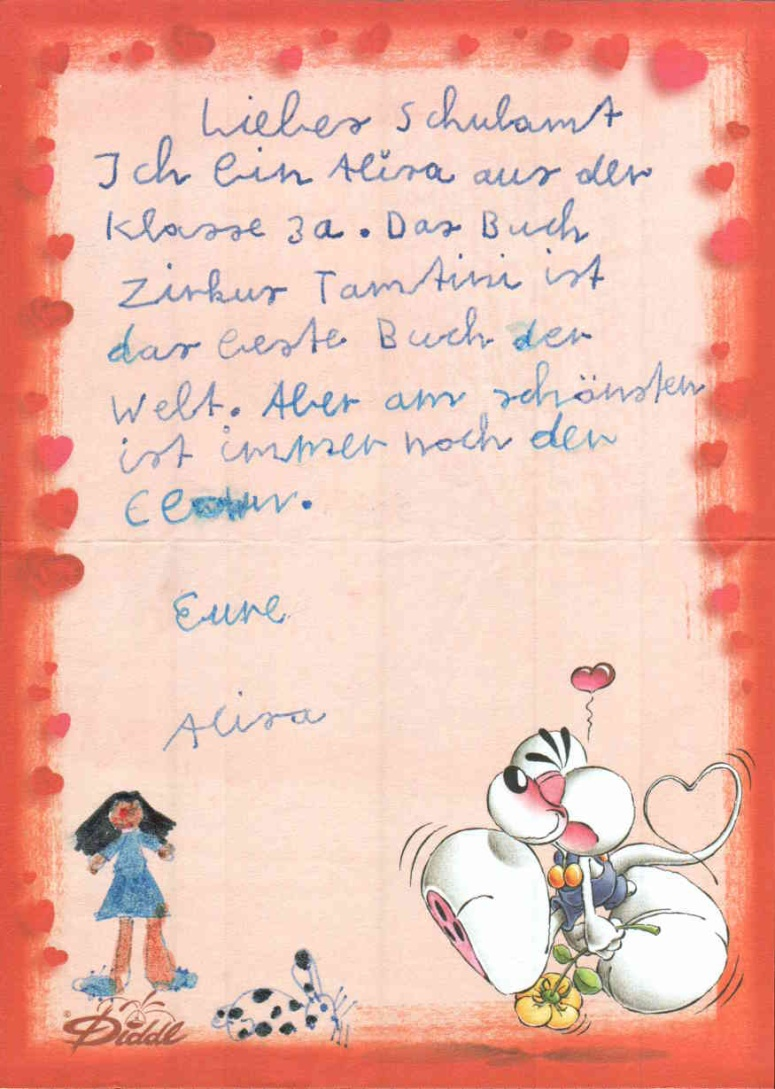 Liebes Schulamt
Ich bin Alisa aus der
Klasse 3a. Das Buch
Zirkus Tamtini ist
das beste Buch der
Welt. Aber am schönsten
ist immer noch der
Eure
Alisa
Diddl